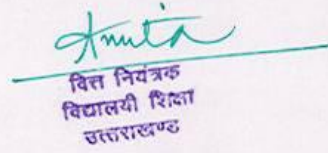 Anuta
वित्त नियंत्रक
विद्यालयी शिक्षा
उत्तराखण्ड